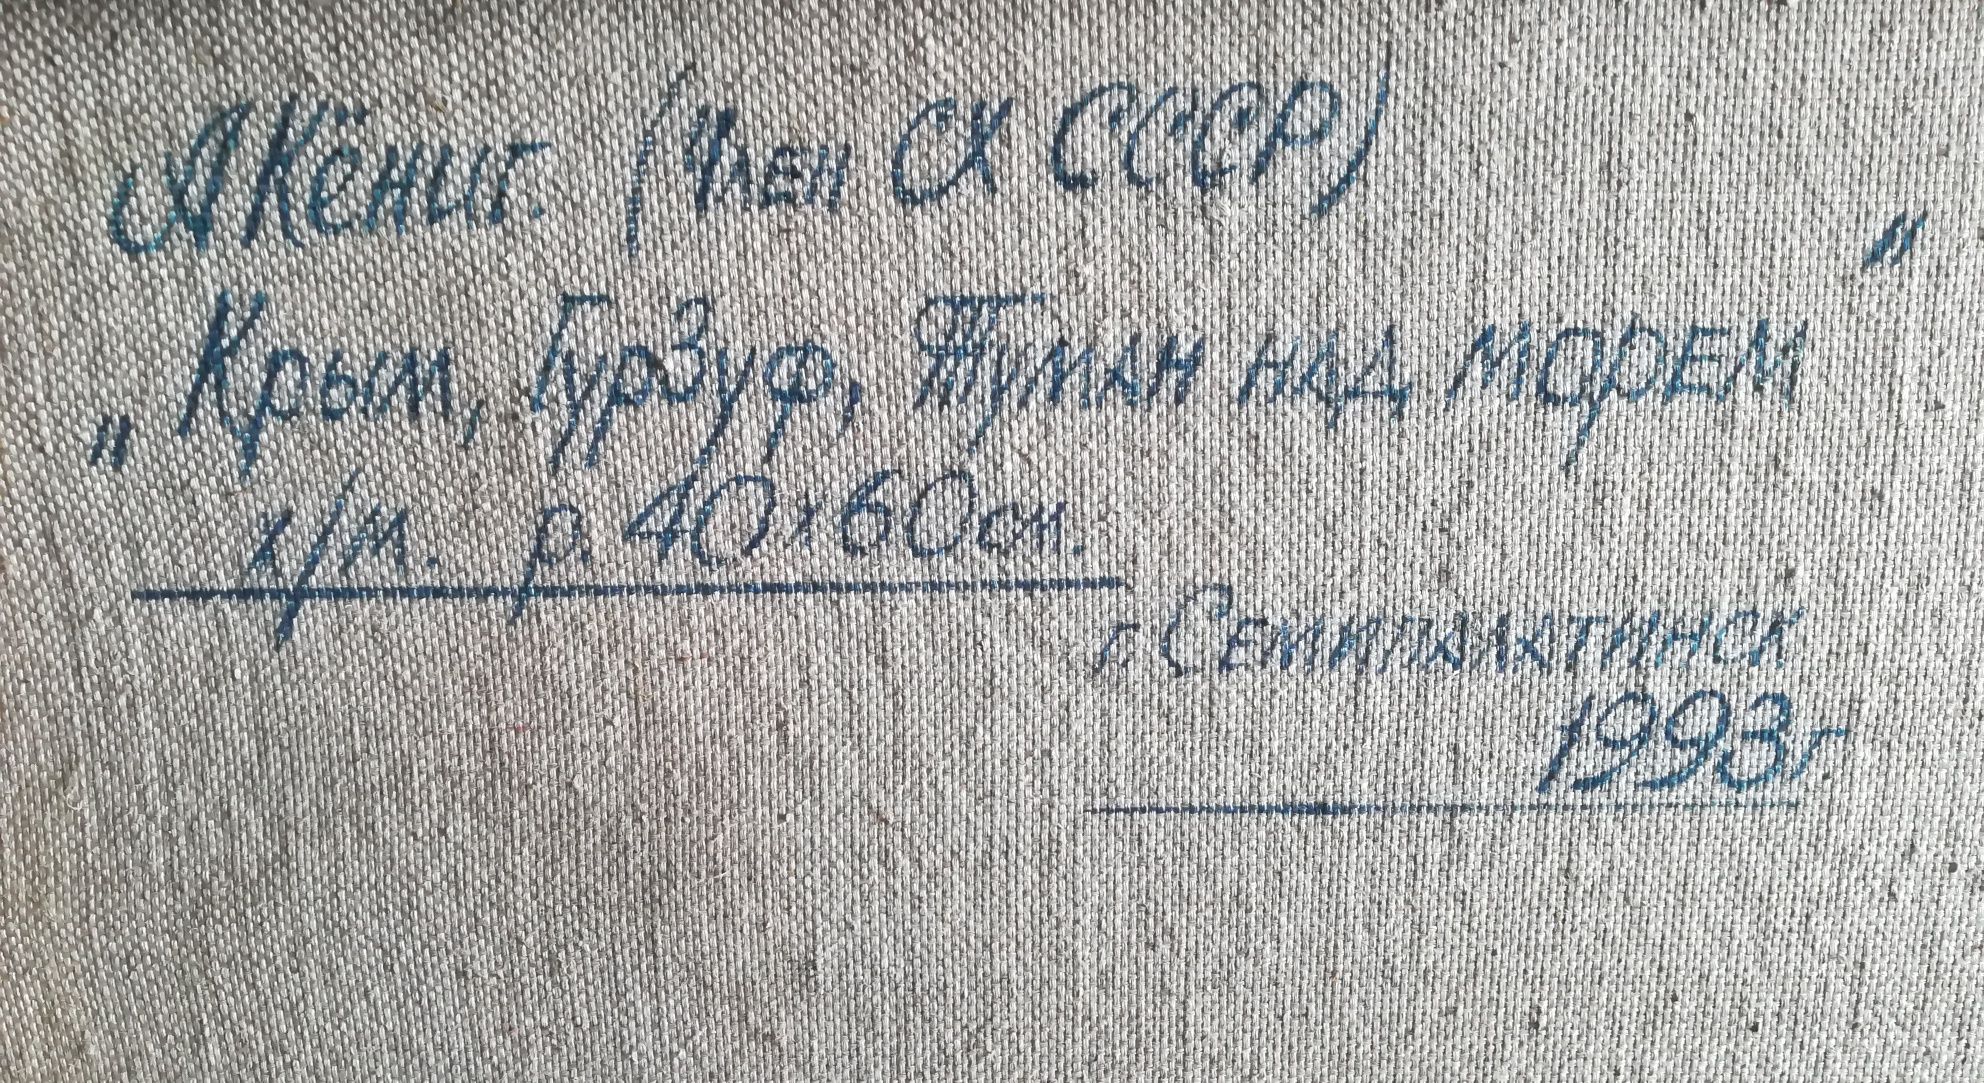 А Кёниг. (Член СХ СССР)
„Крым, Гурзуф, Туман над морем"
х/м. р. 40х60см.
г. Семипалатинск
1993г